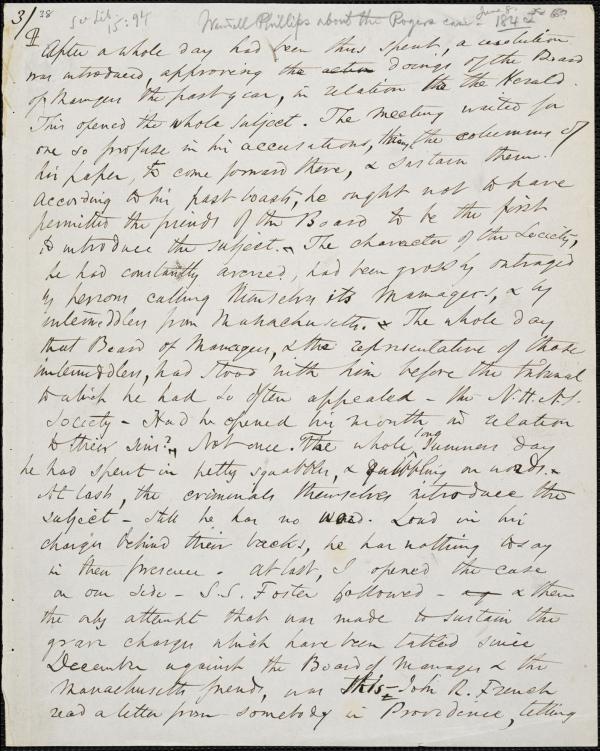 3/
38
See Lib.
15:94
Wendell Phillips about the Rogers case - June 8. 1845
¶ After a whole day had been thus spent, a resolution
was introduced, approving the action doings of the Board
of Managers the past year, in relation the the Herald.
This opened the whole subject. The meeting waited for
one so profuse in his accusations, thro' the columns of
his paper, to come forward there, & sustain them.
According to his past boasts, he ought not to have
permitted the friends of the Board to be the first
to introduce the subject. The character of the Society,
he had constantly averred, had been grossly outraged
by persons calling themselves its Managers, & by
intermeddlers from Massachusetts. & The whole day
that Board of Managers, & the representative of those
intermeddlers, had stood with him before the tribunal
to which he had so often appealed - the N.H.A.S.
Society - Had he opened his mouth in relation
to their sins? Not once. The whole long summers day
he had spent in petty squabbles, & quibbling on words.
At last, the criminals themselves introduce the
subject - still he has no word. Loud in his
charges behind their backs, he has nothing to say
in their presence. At last, I opened the case
on our side - S.S. Foster followed - & then
the only attempt that was made to sustain the
grave charges which have been talked since
December against the Board of Managers & the
Massachusetts friends, was this - John R. French
read a letter from somebody in Providence, telling